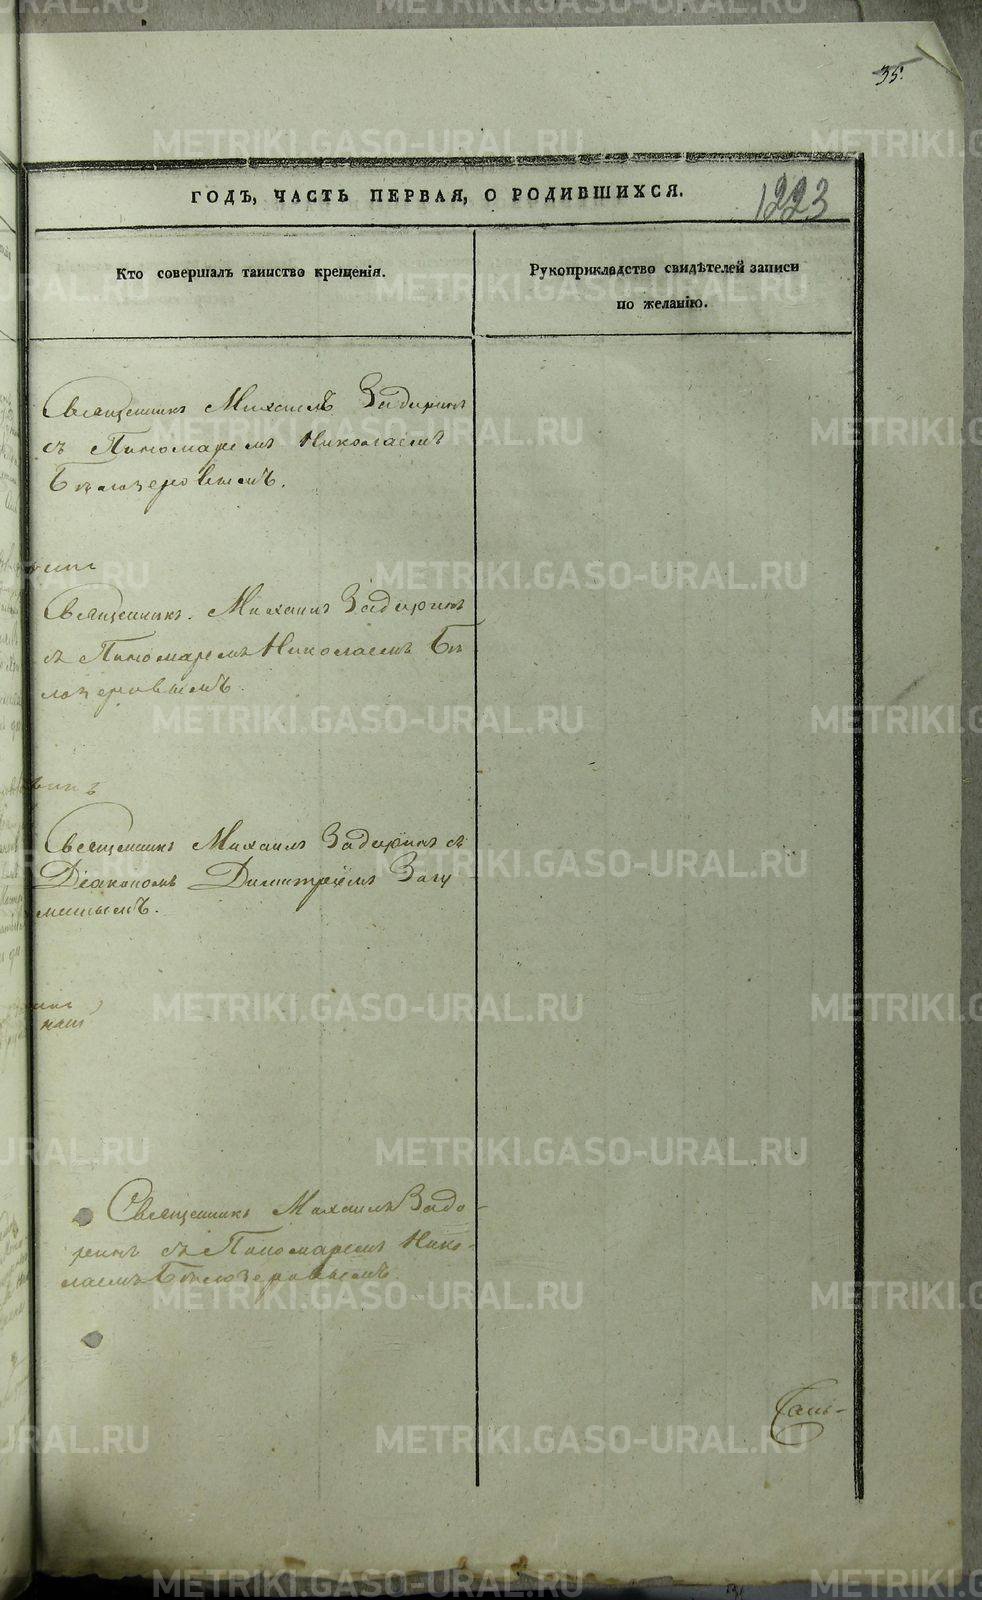 35.
ГОДЪ, ЧАСТЬ ПЕРВАЯ, О РОДИВШИХСЯ.
1223
Кто совершалъ таинство крещенія.
Рукоприкладство свидѣтелей записи
по желанію.
Священникъ Михаилъ Задоринъ
съ Пономаремъ Николаемъ
Бѣлозеровымъ.
Священникъ. Михаилъ Задоринъ
съ Пономаремъ Николаемъ Бѣ
лозеровымъ.
Священникъ Михаилъ Задоринъ съ
Діакономъ Димитріемъ
Священникъ Михаилъ Задо-
ринъ съ Пономаремъ Нико-
лаемъ Бѣлозеровымъ
METRIKI.GASO-URAL.RU